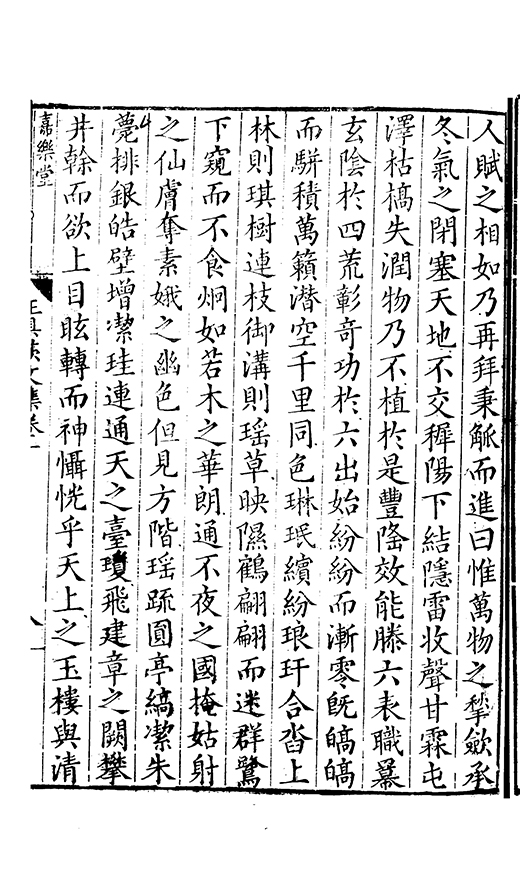 人賦之相如乃再拜秉觚而進曰惟萬物之揫斂承
冬氣之閉塞天地不交穉陽下結隱雷收聲甘霖屯
澤枯槁失潤物乃不植於是豐隆效能滕六表職羃
玄陰於四荒彰竒功於六出始紛紛而漸零旣皜皜
而駢積萬籟潛空千里同色琳珉繽紛琅玕合沓上
林則琪樹連枝御溝則瑶草映隰鶴翩翩而迷群鷺
下窺而不食炯如若木之華朗通不夜之國掩姑射
之仙膚奪素娥之幽色但見方階瑶疏圓亭縞潔朱
甍排銀皓壁增潔珪連通天之臺瓊飛建章之闕攀
井榦而欲上目眩轉而神懾恍乎天上之玉樓與清
嘉樂堂
文集卷一
八